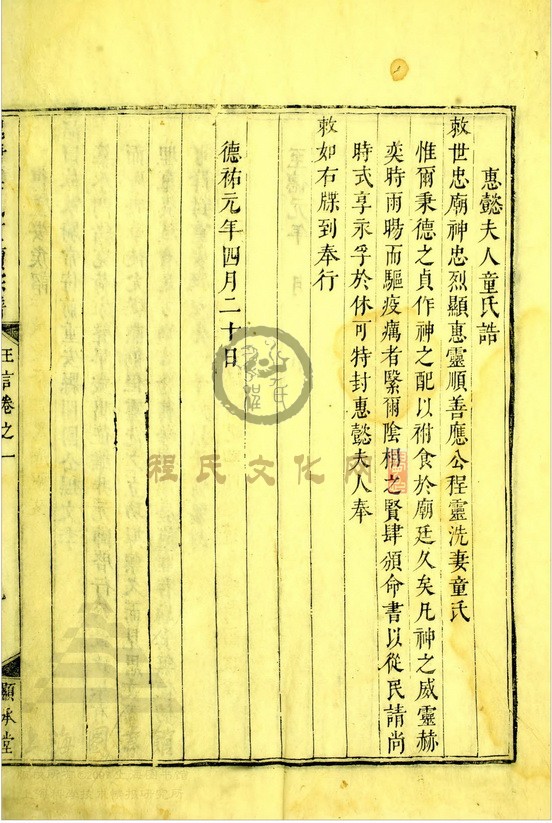 惠懿夫人童氏誥
敕世忠廟神忠烈顯惠靈順善應公程靈洗妻童氏
惟爾秉德之貞作神之配以祔食於廟廷久矣凡神之威靈赫
奕時雨暘而驅疫癘者緊爾陰相之賢肆頒命書以從民請尚
時式享永孚於休可特封惠懿夫人奉
敕如右牒到奉行
德祐元年四月二十日
王言卷之一
顯承堂
程氏文化网